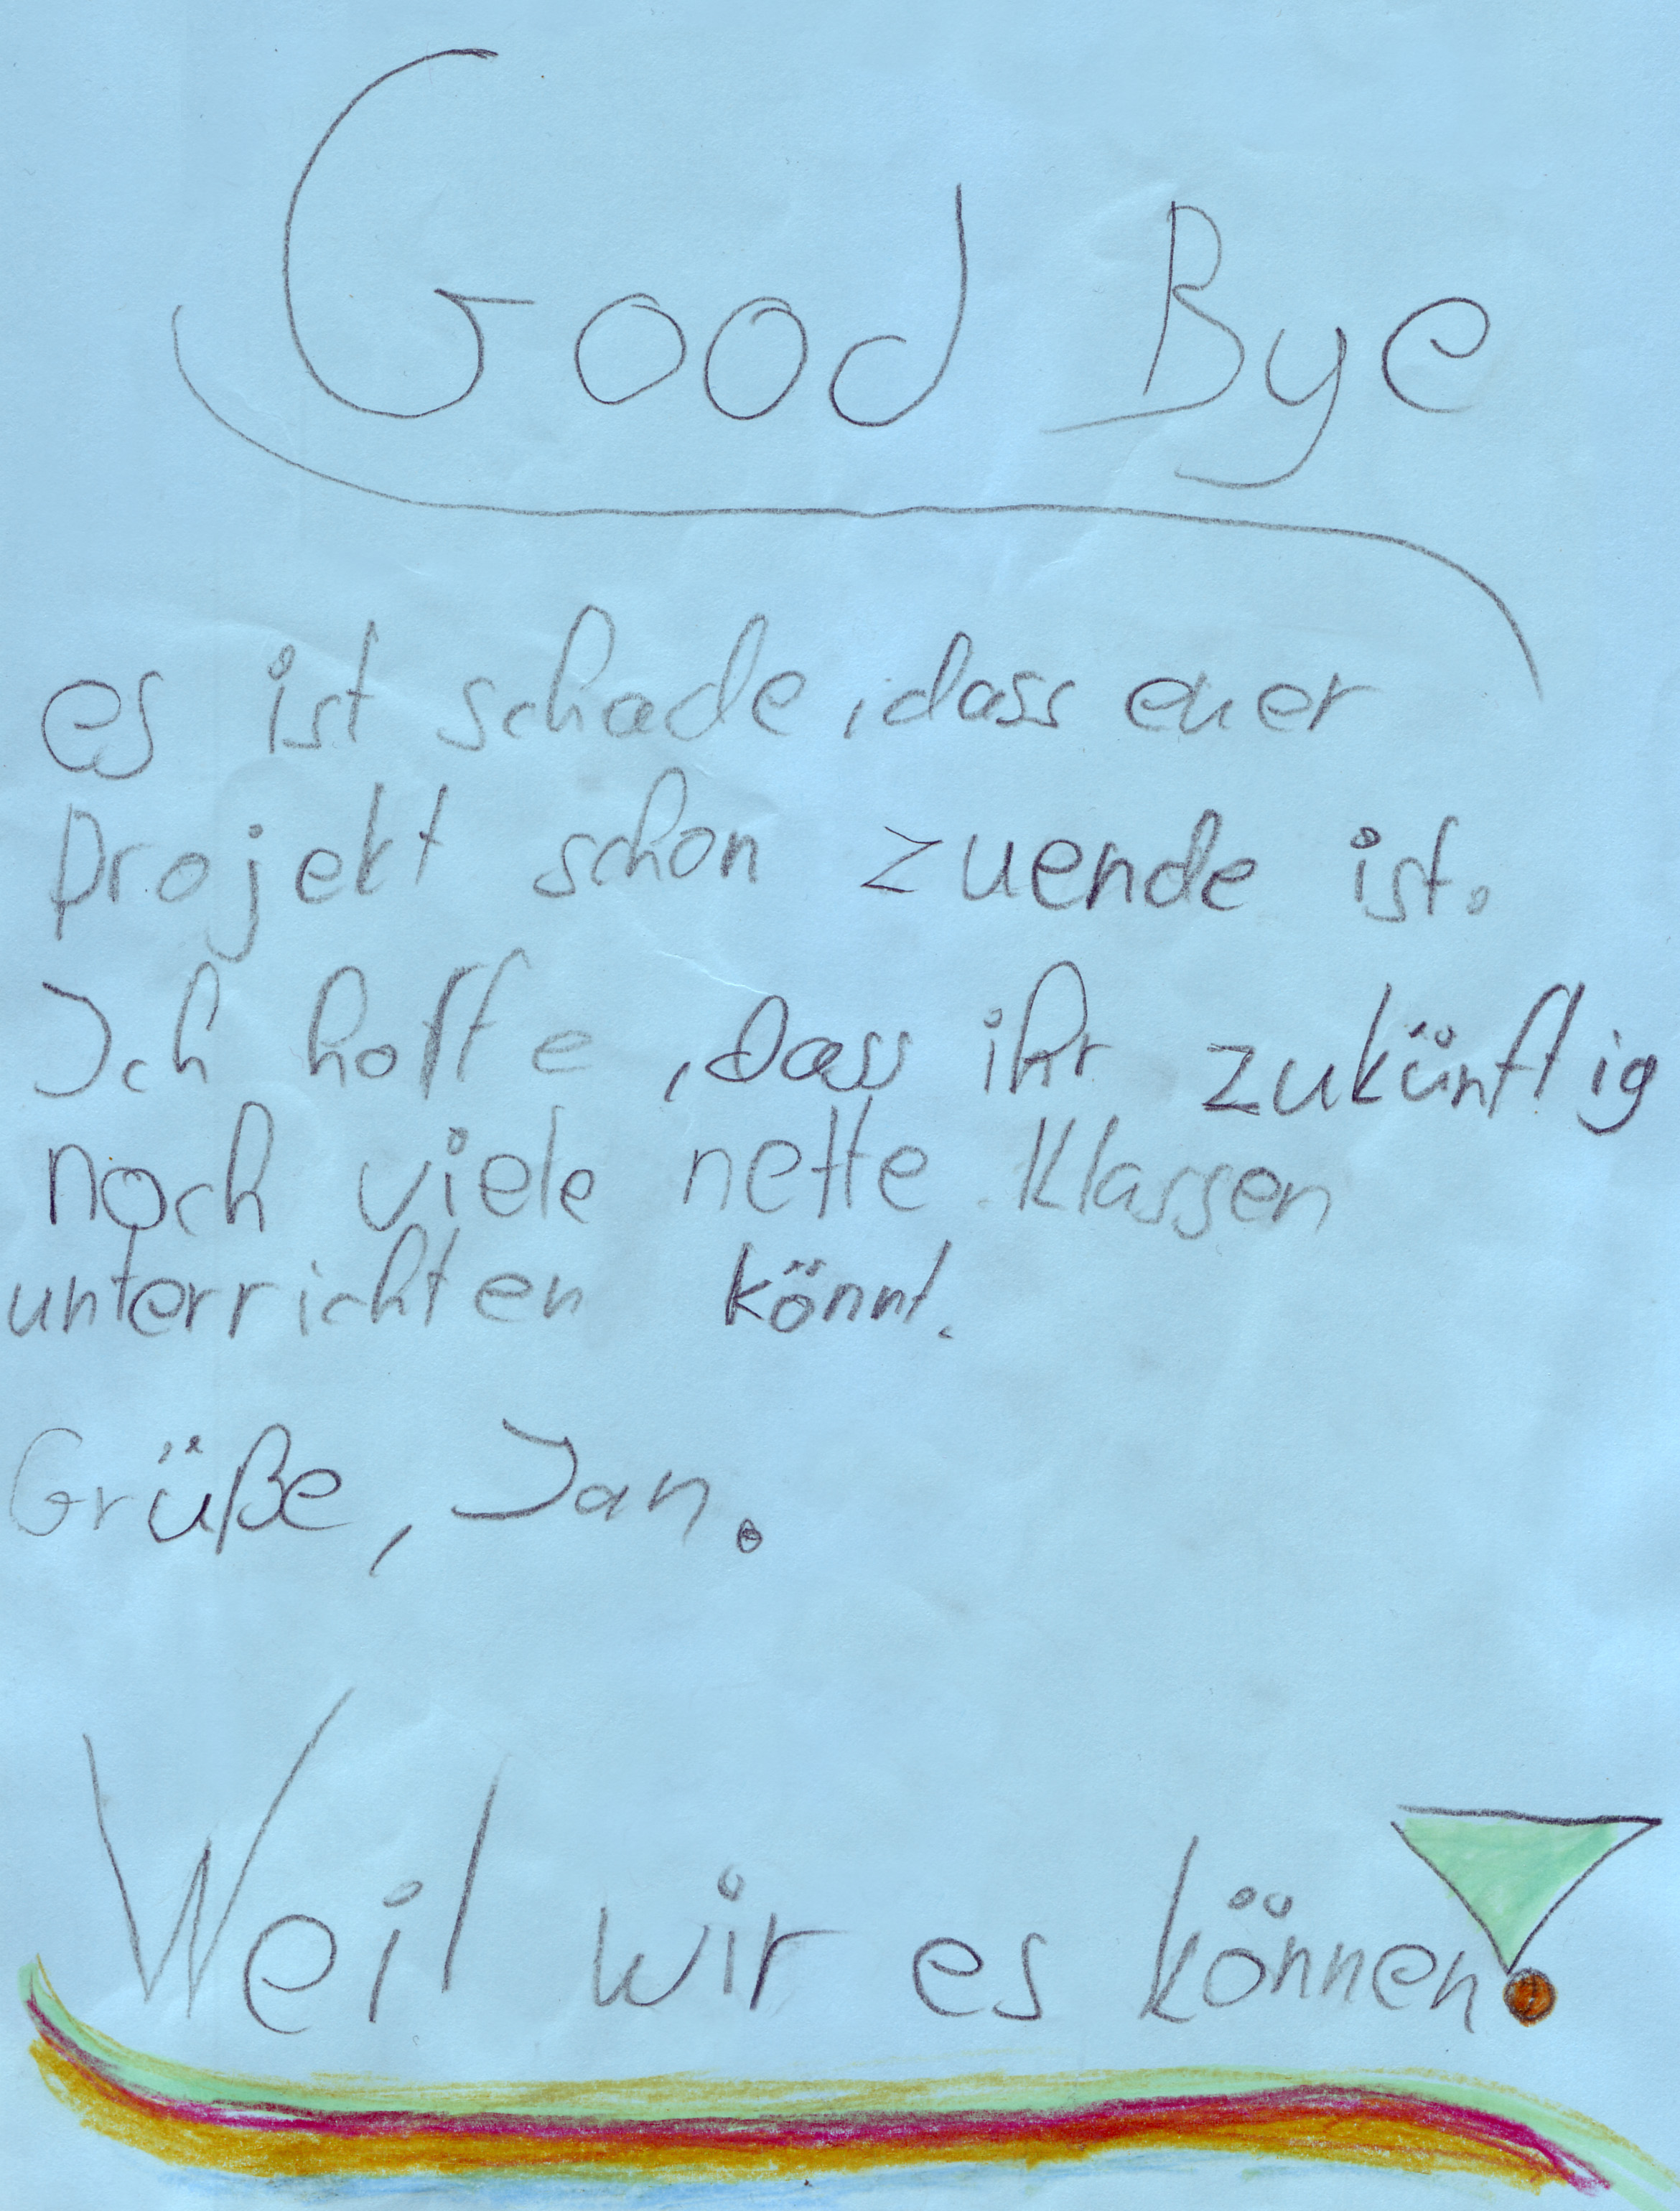 Good Bye
es ist schade, dass euer
Projekt schon zuende ist.
Ich hoffe, dass ihr zukünftig
noch viele nette Klassen
unterrichten könnt.
Grüße, Jan.
Weil wir es können!